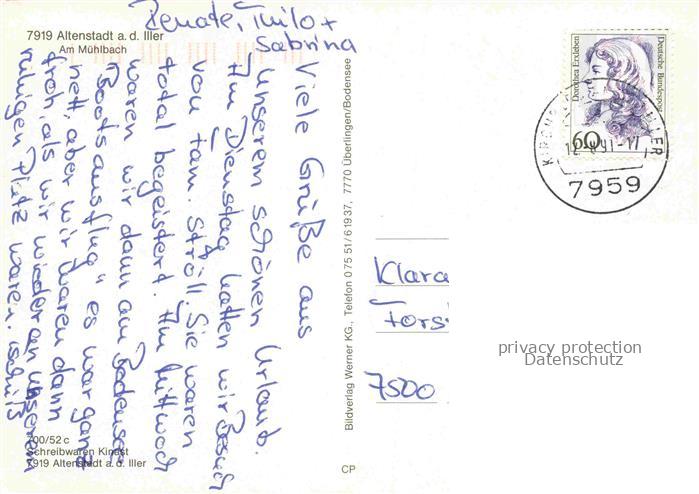 7919 Altenstadt a.d. Iller
Am Mühlbach
Viele Grüße aus
unserem schönen Urlaub.
Am Dienstag hatten wir Besuch
von Fam. Ströll. Sie waren
total begeistert. Am Mittwoch
waren wir dann am Bodensee
"Bootsausflug" es war ganz
nett, aber wir waren dann
froh, als wir wieder an unserem
ruhigen Platz waren. Tschüß
Renate, Thilo +
Sabrina
700/52 c
Schreibwaren Kinast
7919 Altenstadt a. d. Iller
Bildverlag Werner KG., Telefon 0 75 51/6 19 37, 7770 Überlingen/Bodensee
CP
Dorothea Erxleben
Deutsche Bundespost
60
ILLER
7959
Klara
Fors
7500
privacy protection
Datenschutz